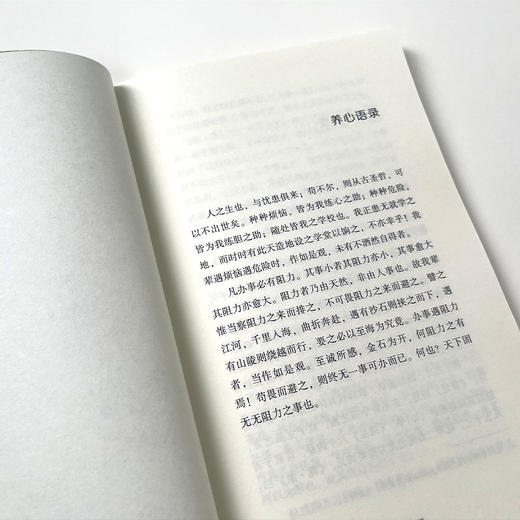 养心语录
人之生也，与忧患俱来；苟不尔，则从古圣哲，可
以不出世矣。种种烦恼，皆为我练心之助；种种危险，
皆为我练胆之助；随处皆我之学校也。我正患无就学之
地，而时时有此天造地设之学堂以饷之，不亦幸乎！我
辈遇烦恼遇危险时，作如是观，未有不洒然自得者。
凡办事必有阻力。其事小者其阻力亦小，其事愈大
其阻力亦愈大。阻力者乃由天然，非由人事也。故我辈
惟当察阻力之来而排之，不可畏阻力之来而避之。譬之
江河，千里入海，曲折奔赴，遇有沙石则挟之而下，遇
有山陵则绕越而行，要之必以至海为究竟。办事遇阻力
者，当作如是观。至诚所感，金石为开，何阻力之有
焉！苟畏而避之，则终无一事可办而已。何也？天下固
无无阻力之事也。